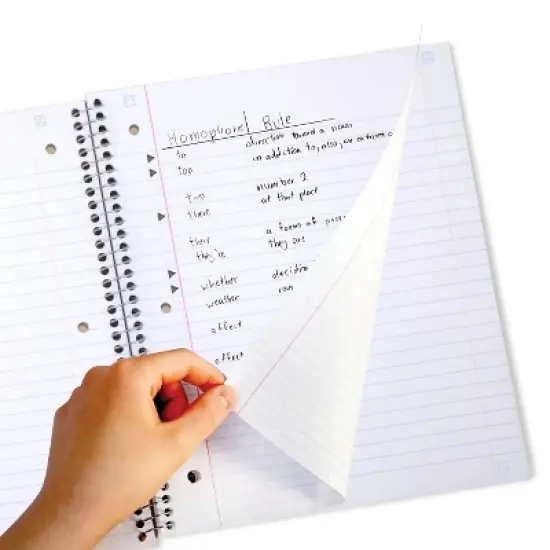 Homophone/ Rule
to direction toward a noun
too in addition to, also, or extreme
two number 2
there at that place
their a form of
they're they are
whether decision
weather rain
affect
effect